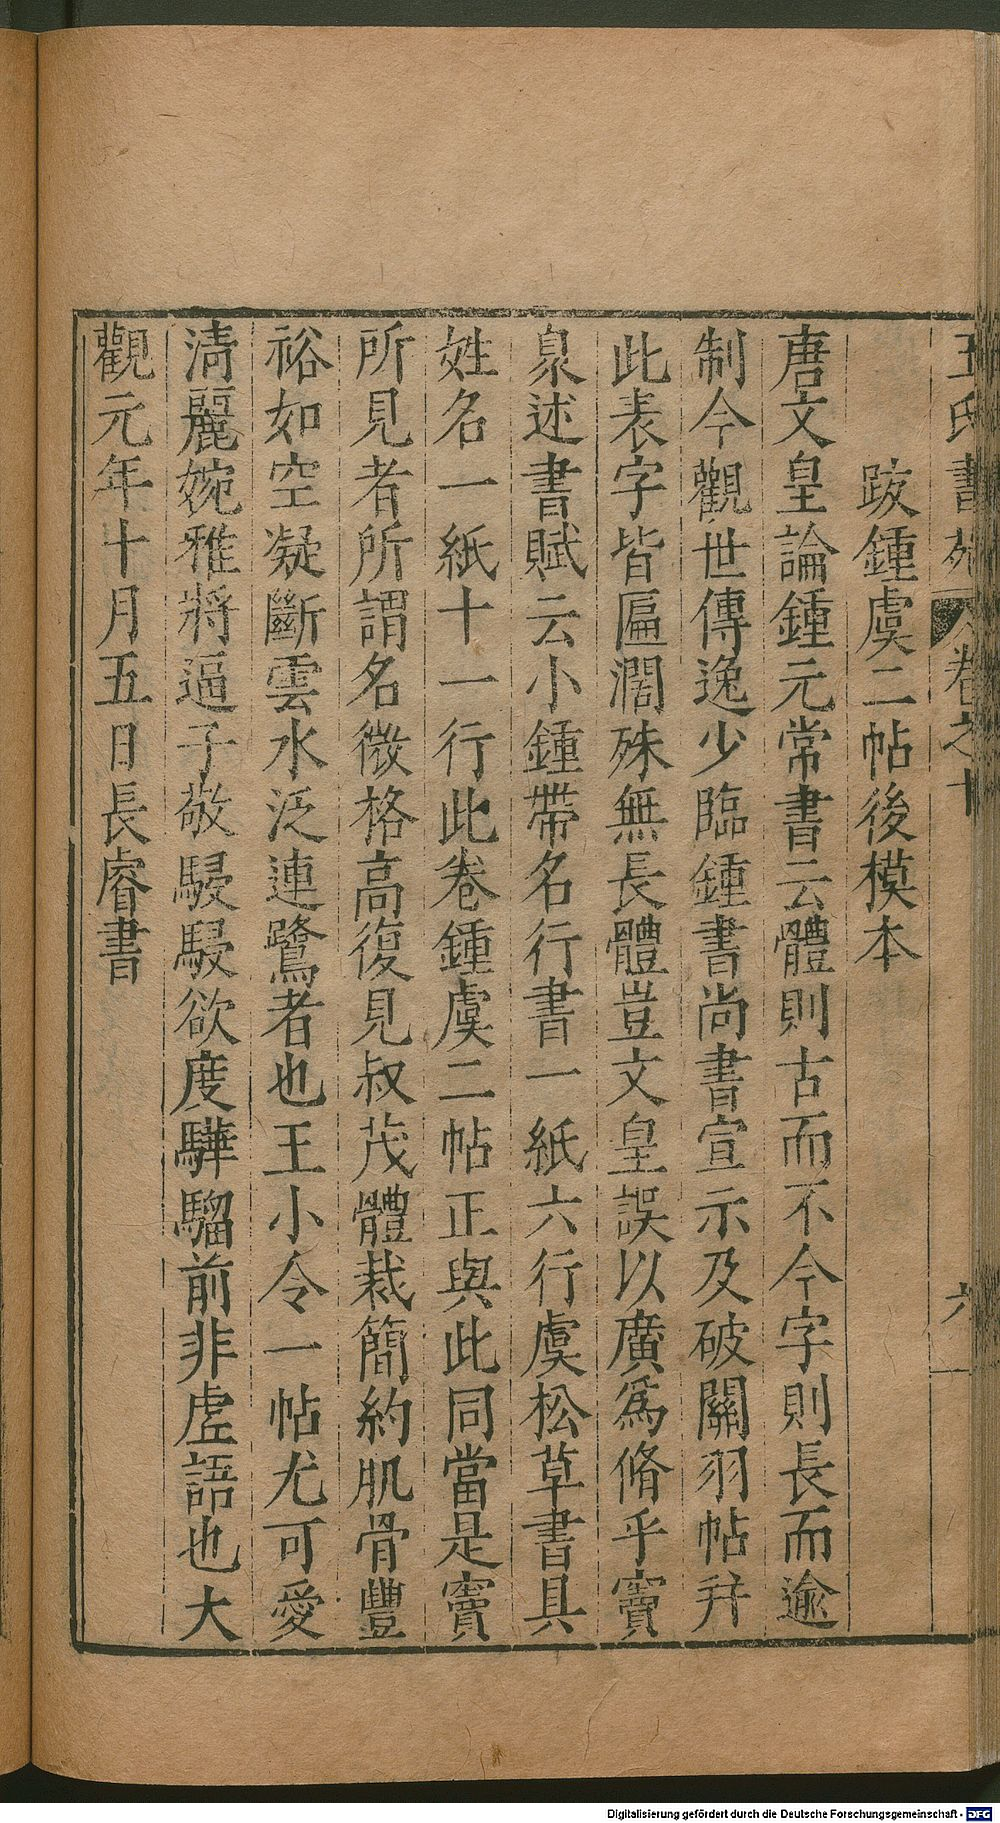 王氏書苑 卷之十 六
跋鍾虞二帖後模本
唐文皇論鍾元常書云體則古而不今字則長而逾
制今觀世傳逸少臨鍾書尚書宣示及破關羽帖并
此表字皆匾濶殊無長體豈文皇誤以廣爲脩乎竇
泉述書賦云小鍾帶名行書一紙六行虞松草書具
姓名一紙十一行此卷鍾虞二帖正與此同當是竇
所見者所謂名微格高復見叔茂體裁簡約肌骨豐
裕如空凝斷雲水泛連鷺者也王小令一帖尤可愛
淸麗婉雅將逼子敬駸駸欲度驊騮前非虛語也大
觀元年十月五日長睿書
Digitalisierung gefördert durch die Deutsche Forschungsgemeinschaft - DFG